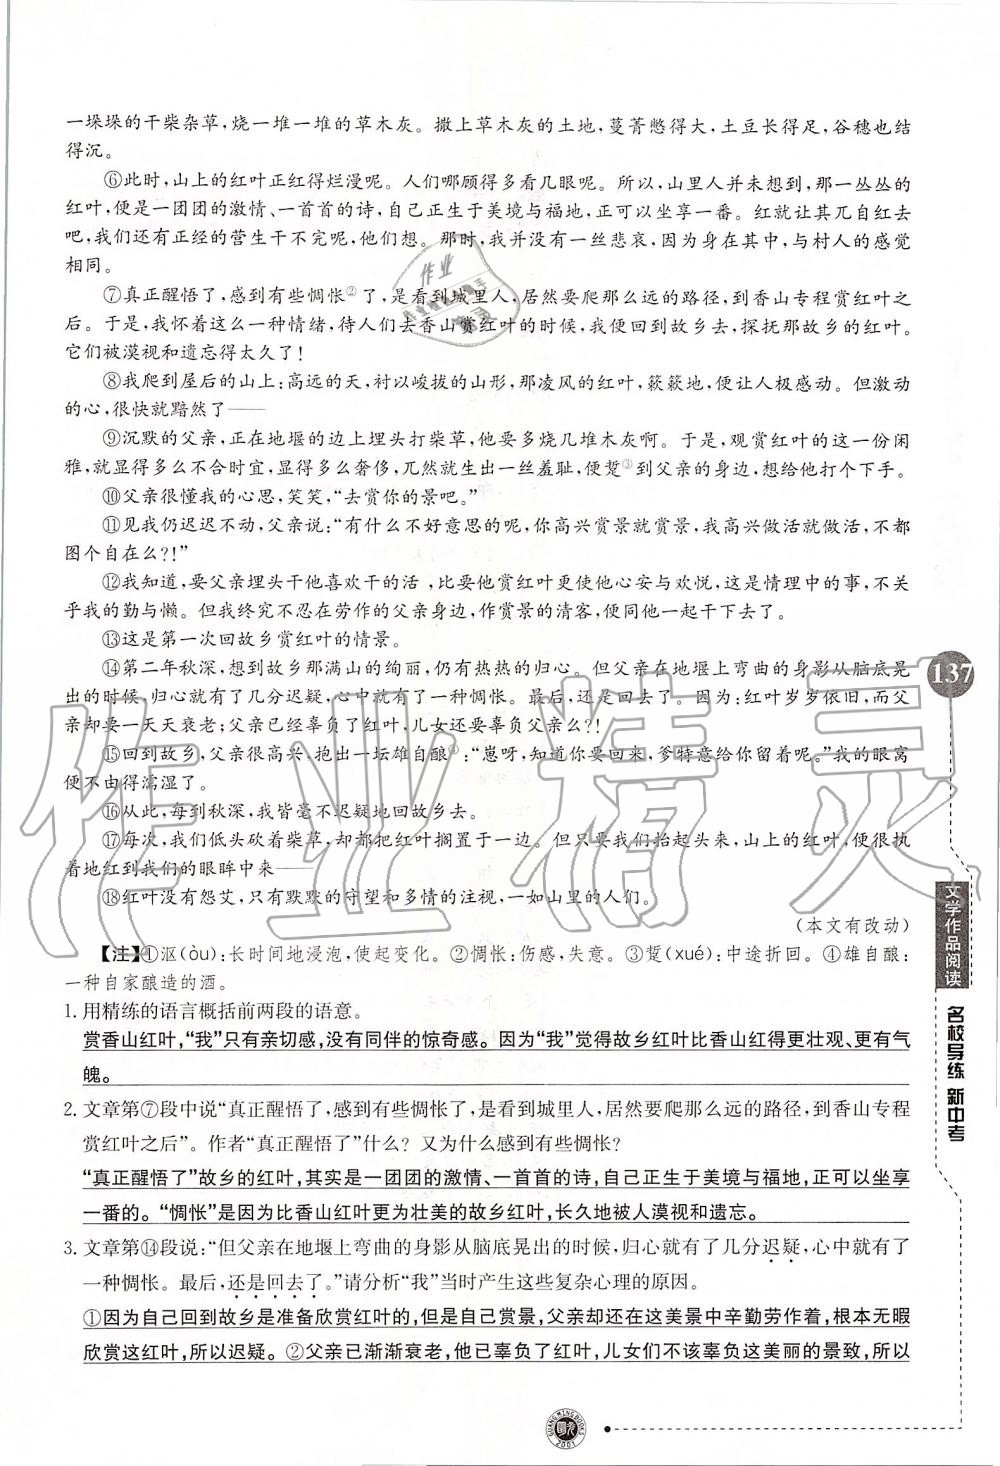 一垛垛的干柴杂草，烧一堆一堆的草木灰。撒上草木灰的土地，蔓菁憋得大，土豆长得足，谷穗也结
得沉。
⑥此时，山上的红叶正红得烂漫呢。人们哪顾得多看几眼呢。所以，山里人并未想到，那一丛丛的
红叶，便是一团团的激情、一首首的诗，自己正生于美境与福地，正可以坐享一番。红就让其兀自红去
吧，我们还有正经的营生干不完呢，他们想。那时，我并没有一丝悲哀，因为身在其中，与村人的感觉
相同。
⑦真正醒悟了，感到有些惆怅②了，是看到城里人，居然要爬那么远的路径，到香山专程赏红叶之
后。于是，我怀着这么一种情绪，待人们去香山赏红叶的时候，我便回到故乡去，探抚那故乡的红叶。
它们被漠视和遗忘得太久了！
⑧我爬到屋后的山上：高远的天，衬以峻拔的山形，那凌风的红叶，簌簌地，便让人极感动。但激动
的心，很快就黯然了——
⑨沉默的父亲，正在地堰的边上埋头打柴草，他要多烧几堆木灰啊。于是，观赏红叶的这一份闲
雅，就显得多么不合时宜，显得多么奢侈，兀然就生出一丝羞耻，便踅③到父亲的身边，想给他打个下手。
⑩父亲很懂我的心思，笑笑，“去赏你的景吧。”
⑪见我仍迟迟不动，父亲说：“有什么不好意思的呢，你高兴赏景就赏景，我高兴做活就做活，不都
图个自在么？！”
⑫我知道，要父亲埋头干他喜欢干的活，比要他赏红叶更使他心安与欢悦，这是情理中的事，不关
乎我的勤与懒。但我终究不忍在劳作的父亲身边，作赏景的清客，便同他一起干下去了。
⑬这是第一次回故乡赏红叶的情景。
⑭第二年秋深，想到故乡那满山的绚丽，仍有热热的归心。但父亲在地堰上弯曲的身影从脑底晃
出的时候，归心就有了几分迟疑，心中就有了一种惆怅。最后，还是回去了。因为：红叶岁岁依旧，而父
亲却要一天天衰老；父亲已经辜负了红叶，儿女还要辜负父亲么？！
⑮回到故乡，父亲很高兴，抱出一坛雄自酿④：“崽呀，知道你要回来，爹特意给你留着呢。”我的眼窝
便不由得濡湿了。
⑯从此，每到秋深，我皆毫不迟疑地回故乡去。
⑰每次，我们低头砍着柴草，却都把红叶搁置于一边。但只要我们抬起头来，山上的红叶，便很执
着地红到我们的眼眸中来——
⑱红叶没有怨艾，只有默默的守望和多情的注视，一如山里的人们。
（本文有改动）
【注】①沤(òu)：长时间地浸泡，使起变化。②惆怅：伤感，失意。③踅(xué)：中途折回。④雄自酿：
一种自家酿造的酒。
1. 用精练的语言概括前两段的语意。
赏香山红叶，“我”只有亲切感，没有同伴的惊奇感。因为“我”觉得故乡红叶比香山红得更壮观、更有气
魄。
2. 文章第⑦段中说“真正醒悟了，感到有些惆怅了，是看到城里人，居然要爬那么远的路径，到香山专程
赏红叶之后”。作者“真正醒悟了”什么？又为什么感到有些惆怅？
“真正醒悟了”故乡的红叶，其实是一团团的激情、一首首的诗，自己正生于美境与福地，正可以坐享
一番的。“惆怅”是因为比香山红叶更为壮美的故乡红叶，长久地被人漠视和遗忘。
3. 文章第⑭段说：“但父亲在地堰上弯曲的身影从脑底晃出的时候，归心就有了几分迟疑，心中就有了
一种惆怅。最后，还是回去了。”请分析“我”当时产生这些复杂心理的原因。
①因为自己回到故乡是准备欣赏红叶的，但是自己赏景，父亲却还在这美景中辛勤劳作着，根本无暇
欣赏这红叶，所以迟疑。②父亲已渐渐衰老，他已辜负了红叶，儿女们不该辜负这美丽的景致，所以
137
文学作品阅读
名校导练 新中考
GUANG MING BOOKS
2001
作业精灵